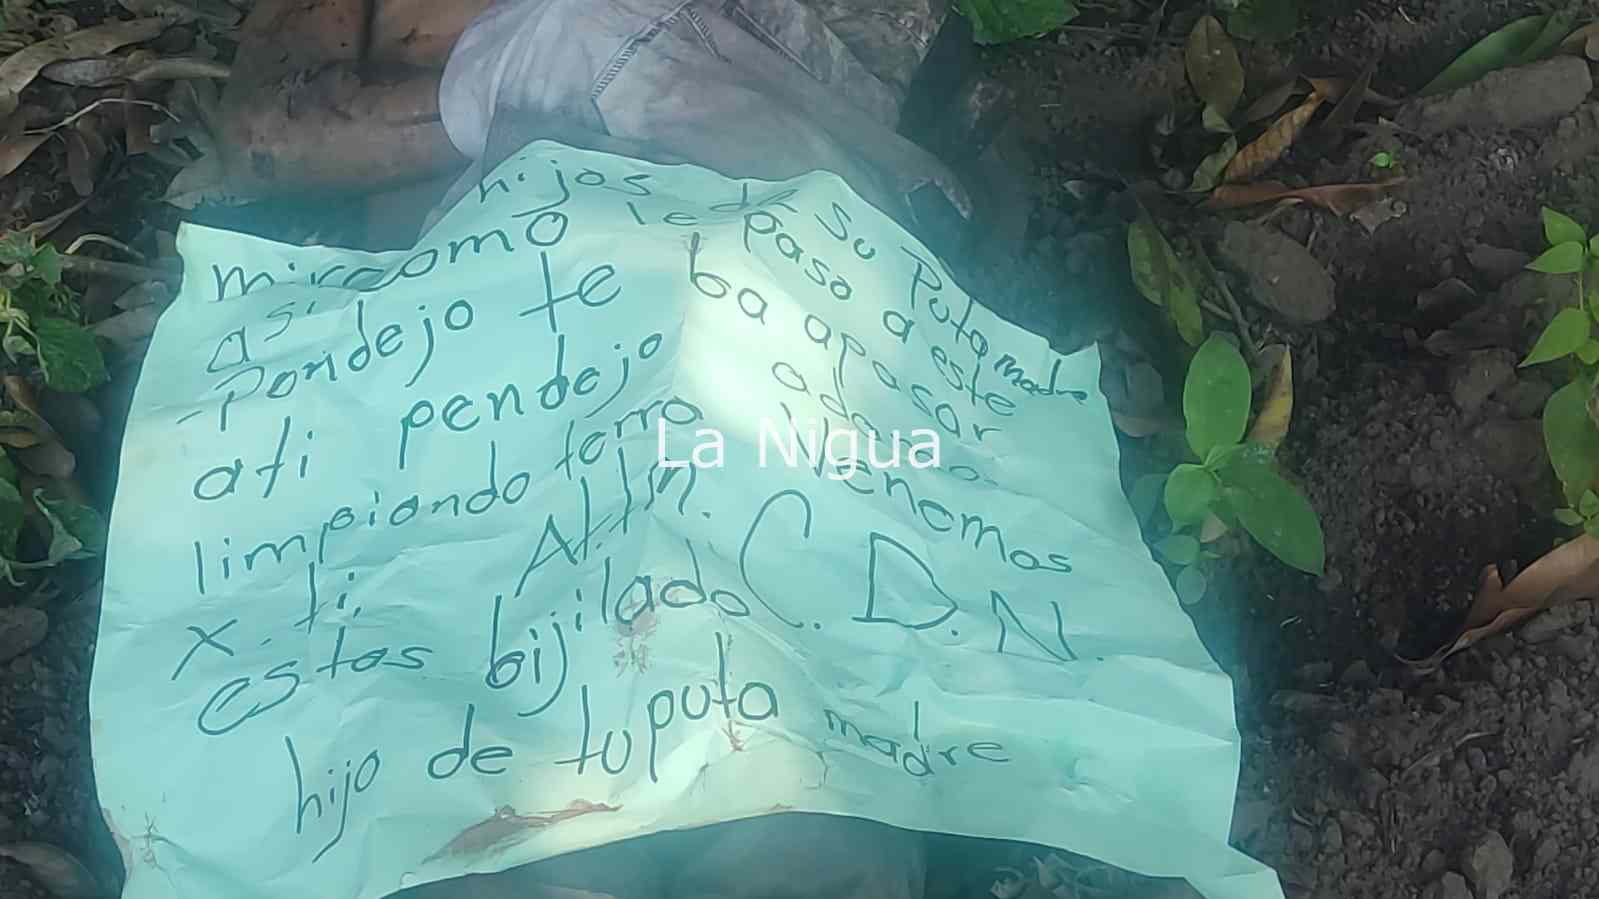 hijos de su Puta madre
como le paso a este
asi
-Pendejo te ba apasar
ati pendejo
limpiando terro Venemos
x. ti. C.D.N.
estas bijilado
hijo de tu puta madre
La Nigua